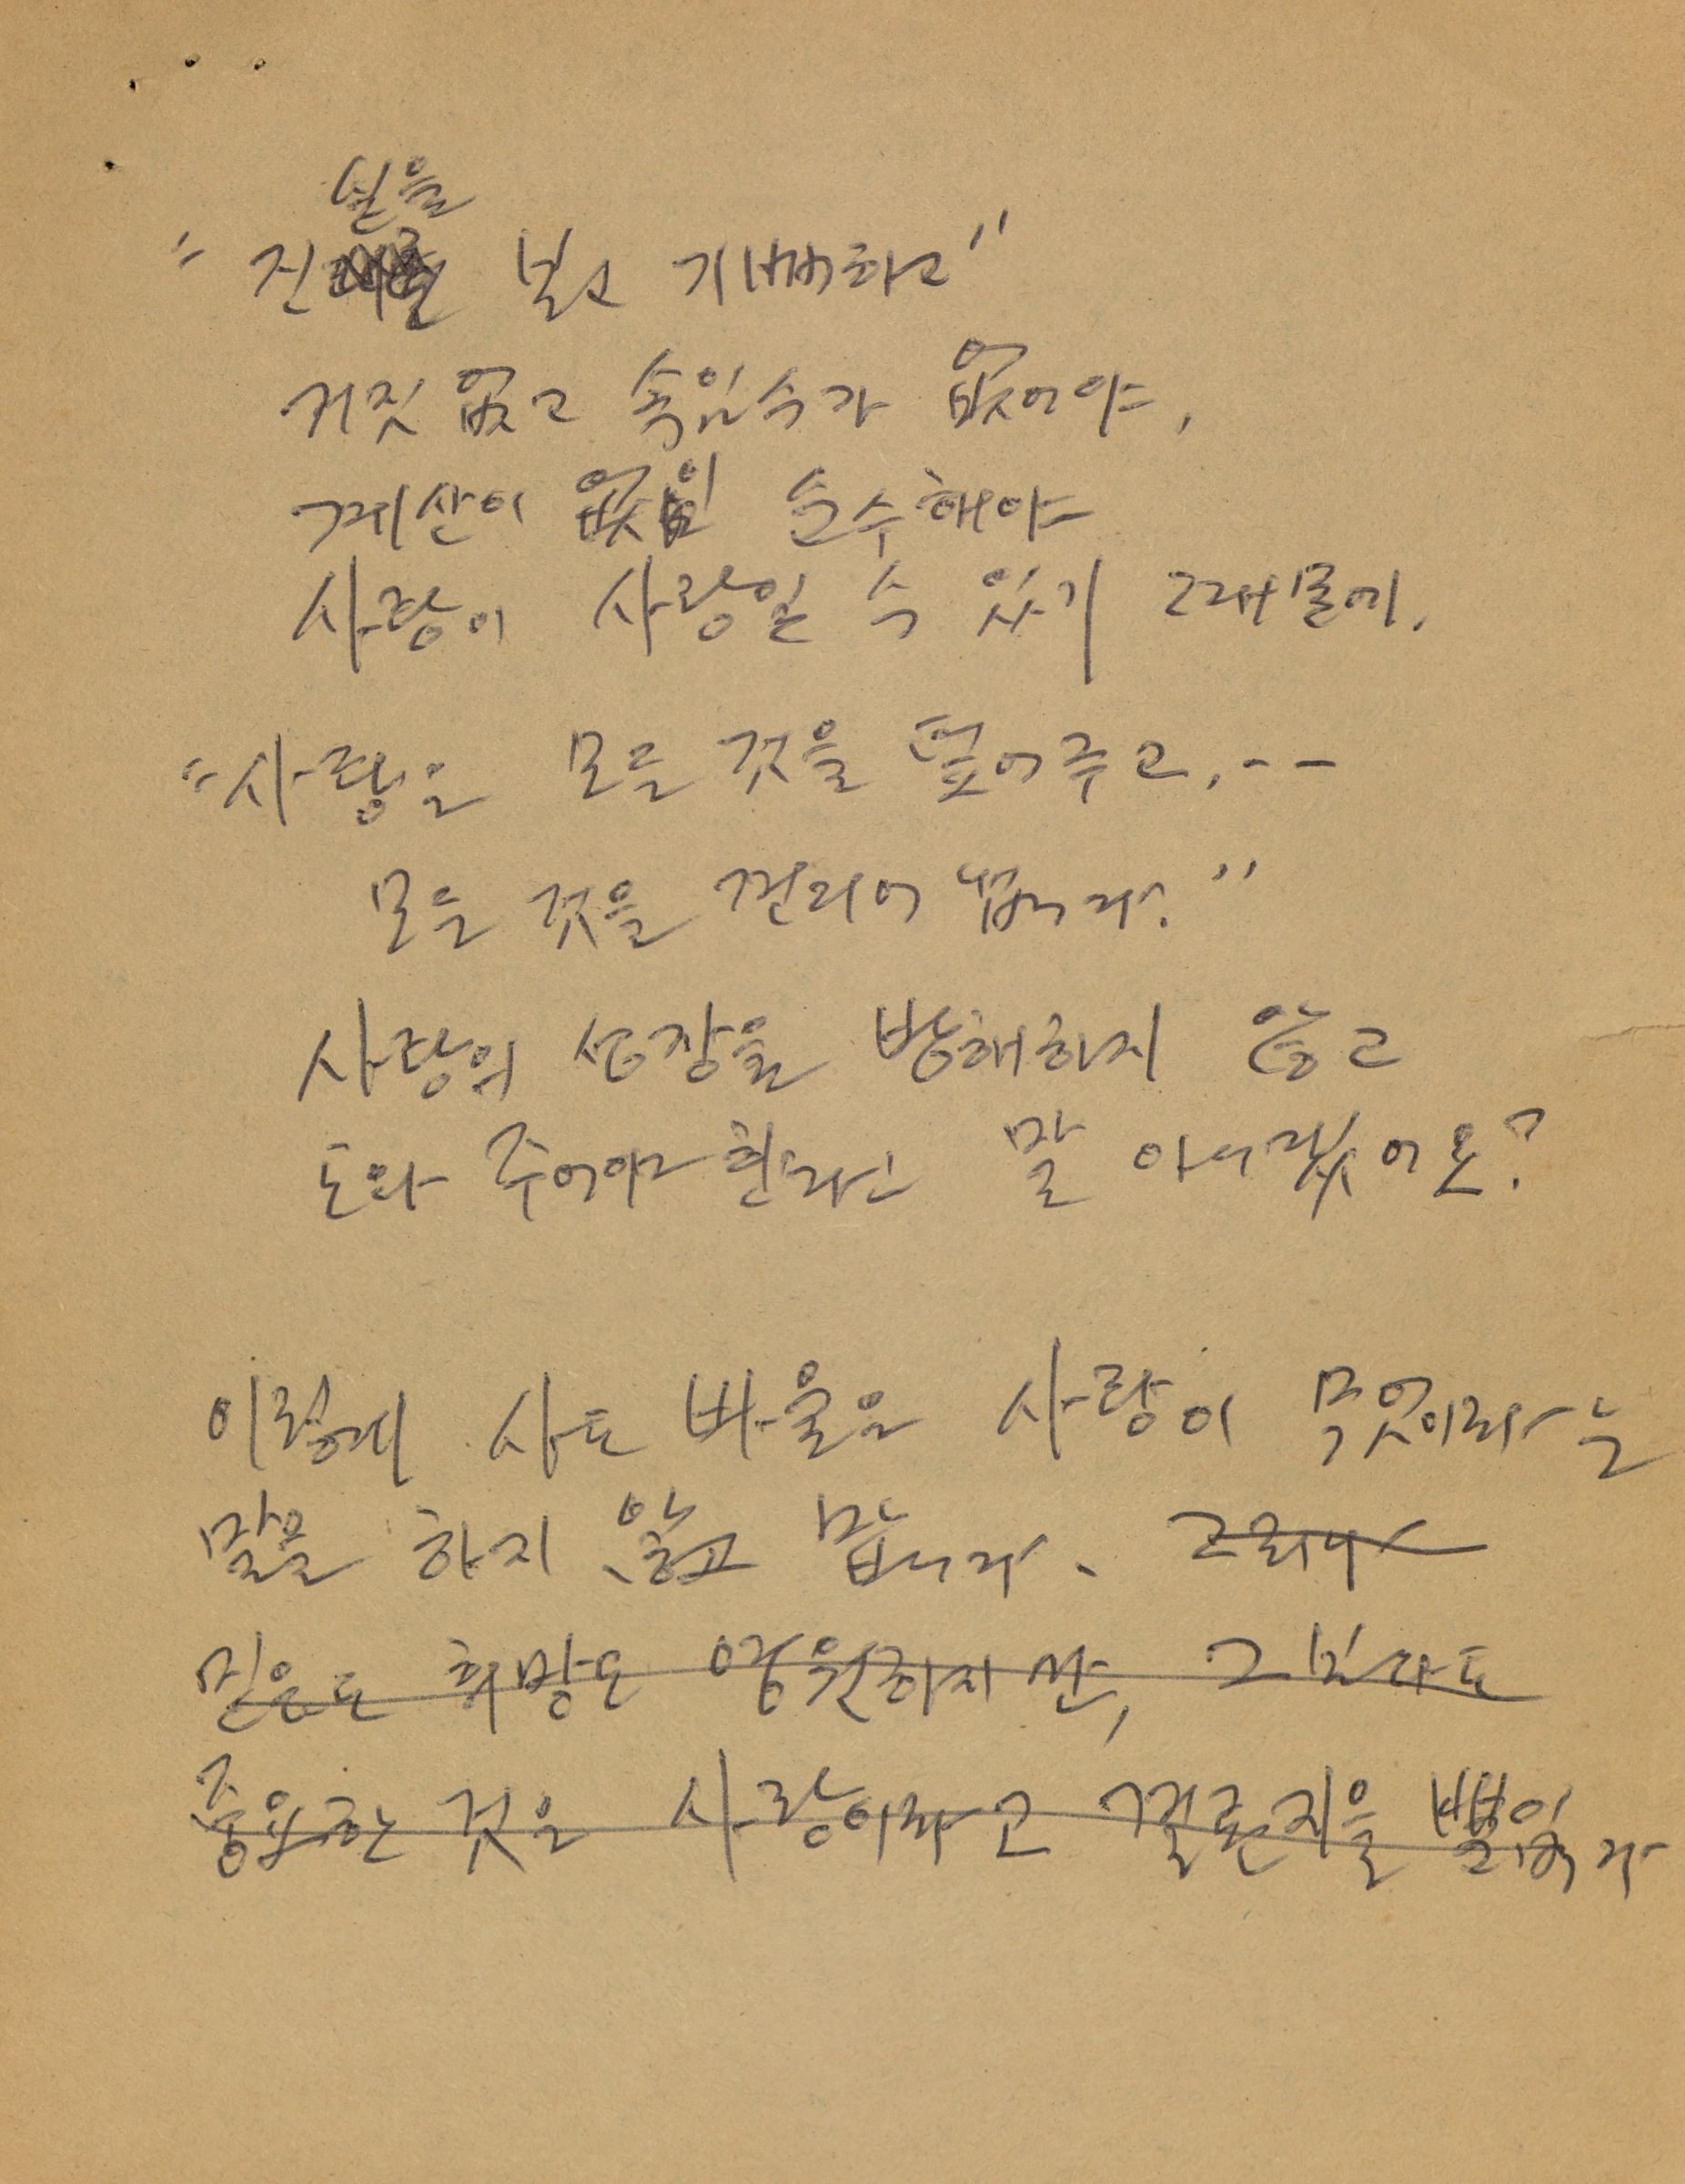 실을
" 진 보고 기뻐하고 "
거짓 없고 속임수가 없어야,
계산이 없이 순수해야
사랑이 사랑일 수 있기 때문에.
" 사랑은 모든 것을 덮어주고, --
모든 것을 견디어 냅니다. "
사랑의 성장을 방해하지 않고
도와 주어야 한다는 말 아니겠어요?
이렇게 사도 바울은 사랑이 무엇이라는
말을 하지 않고 맙니다. 그러나
믿음도 희망도 영원하지만, 그보다도
중요한 것은 사랑이라고 결론지을 뿐입니다